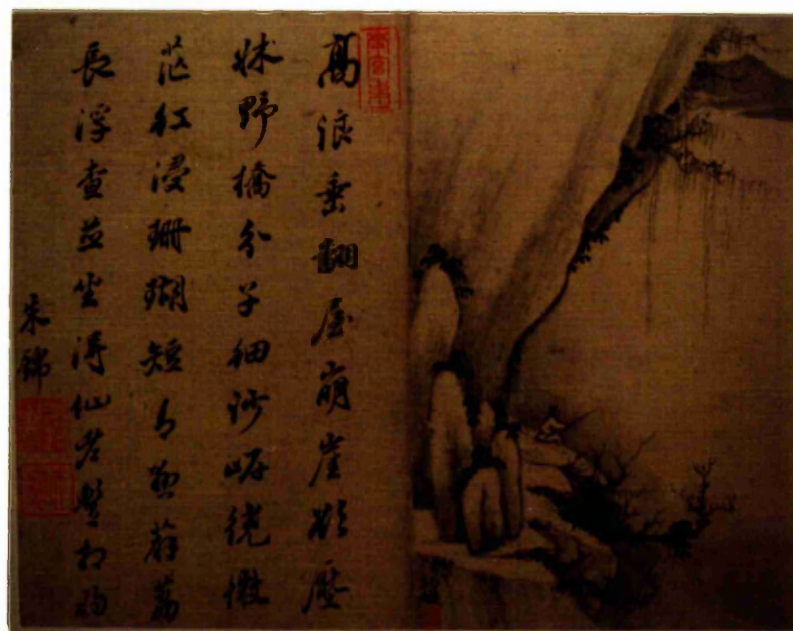 高浪垂翻屋崩崖欲壓
牀野橋分子細沙岸繞微
茫紅浸珊瑚短青懸薜荔
長浮查並坐得仙老暫相將
朱錦